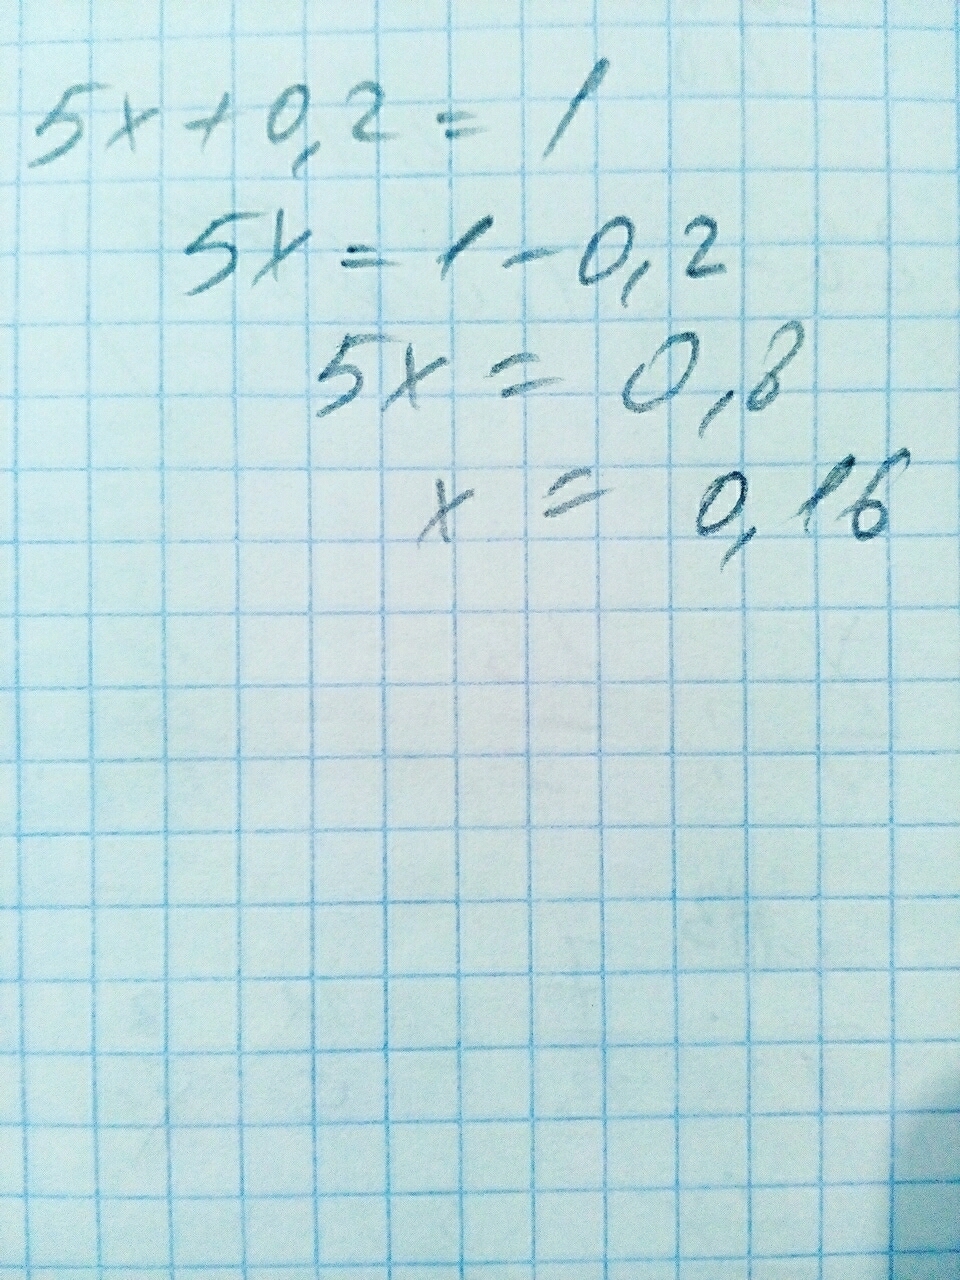 5x + 0,2 = 1
5x = 1 - 0,2
5x = 0,8
x = 0,16